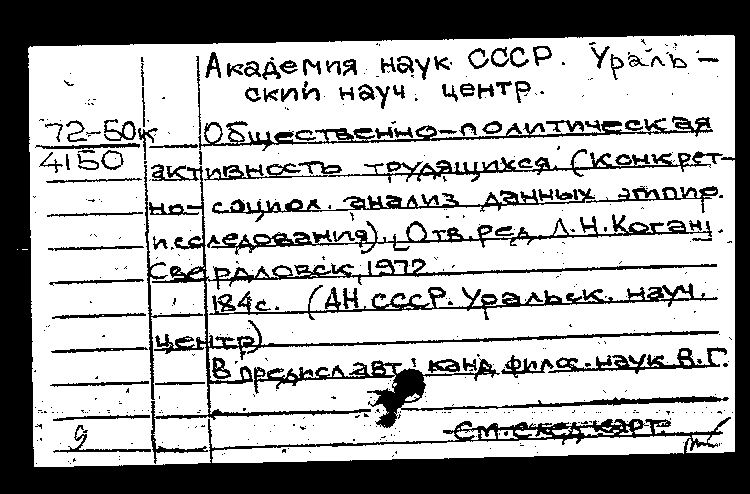 Академия наук СССР. Ураль-
ский науч. центр.
72-50к Общественно-политическая
4150 активность трудящихся. (Конкрет-
но-социол. анализ данных эмпир.
исследования). [Отв. ред. Л.Н.Коган].
Свердловск, 1972.
184с. (АН.СССР. Уральск. науч.
центр).
В предисл. авт.: канд. филос. наук В.Г.
См. след. карт.